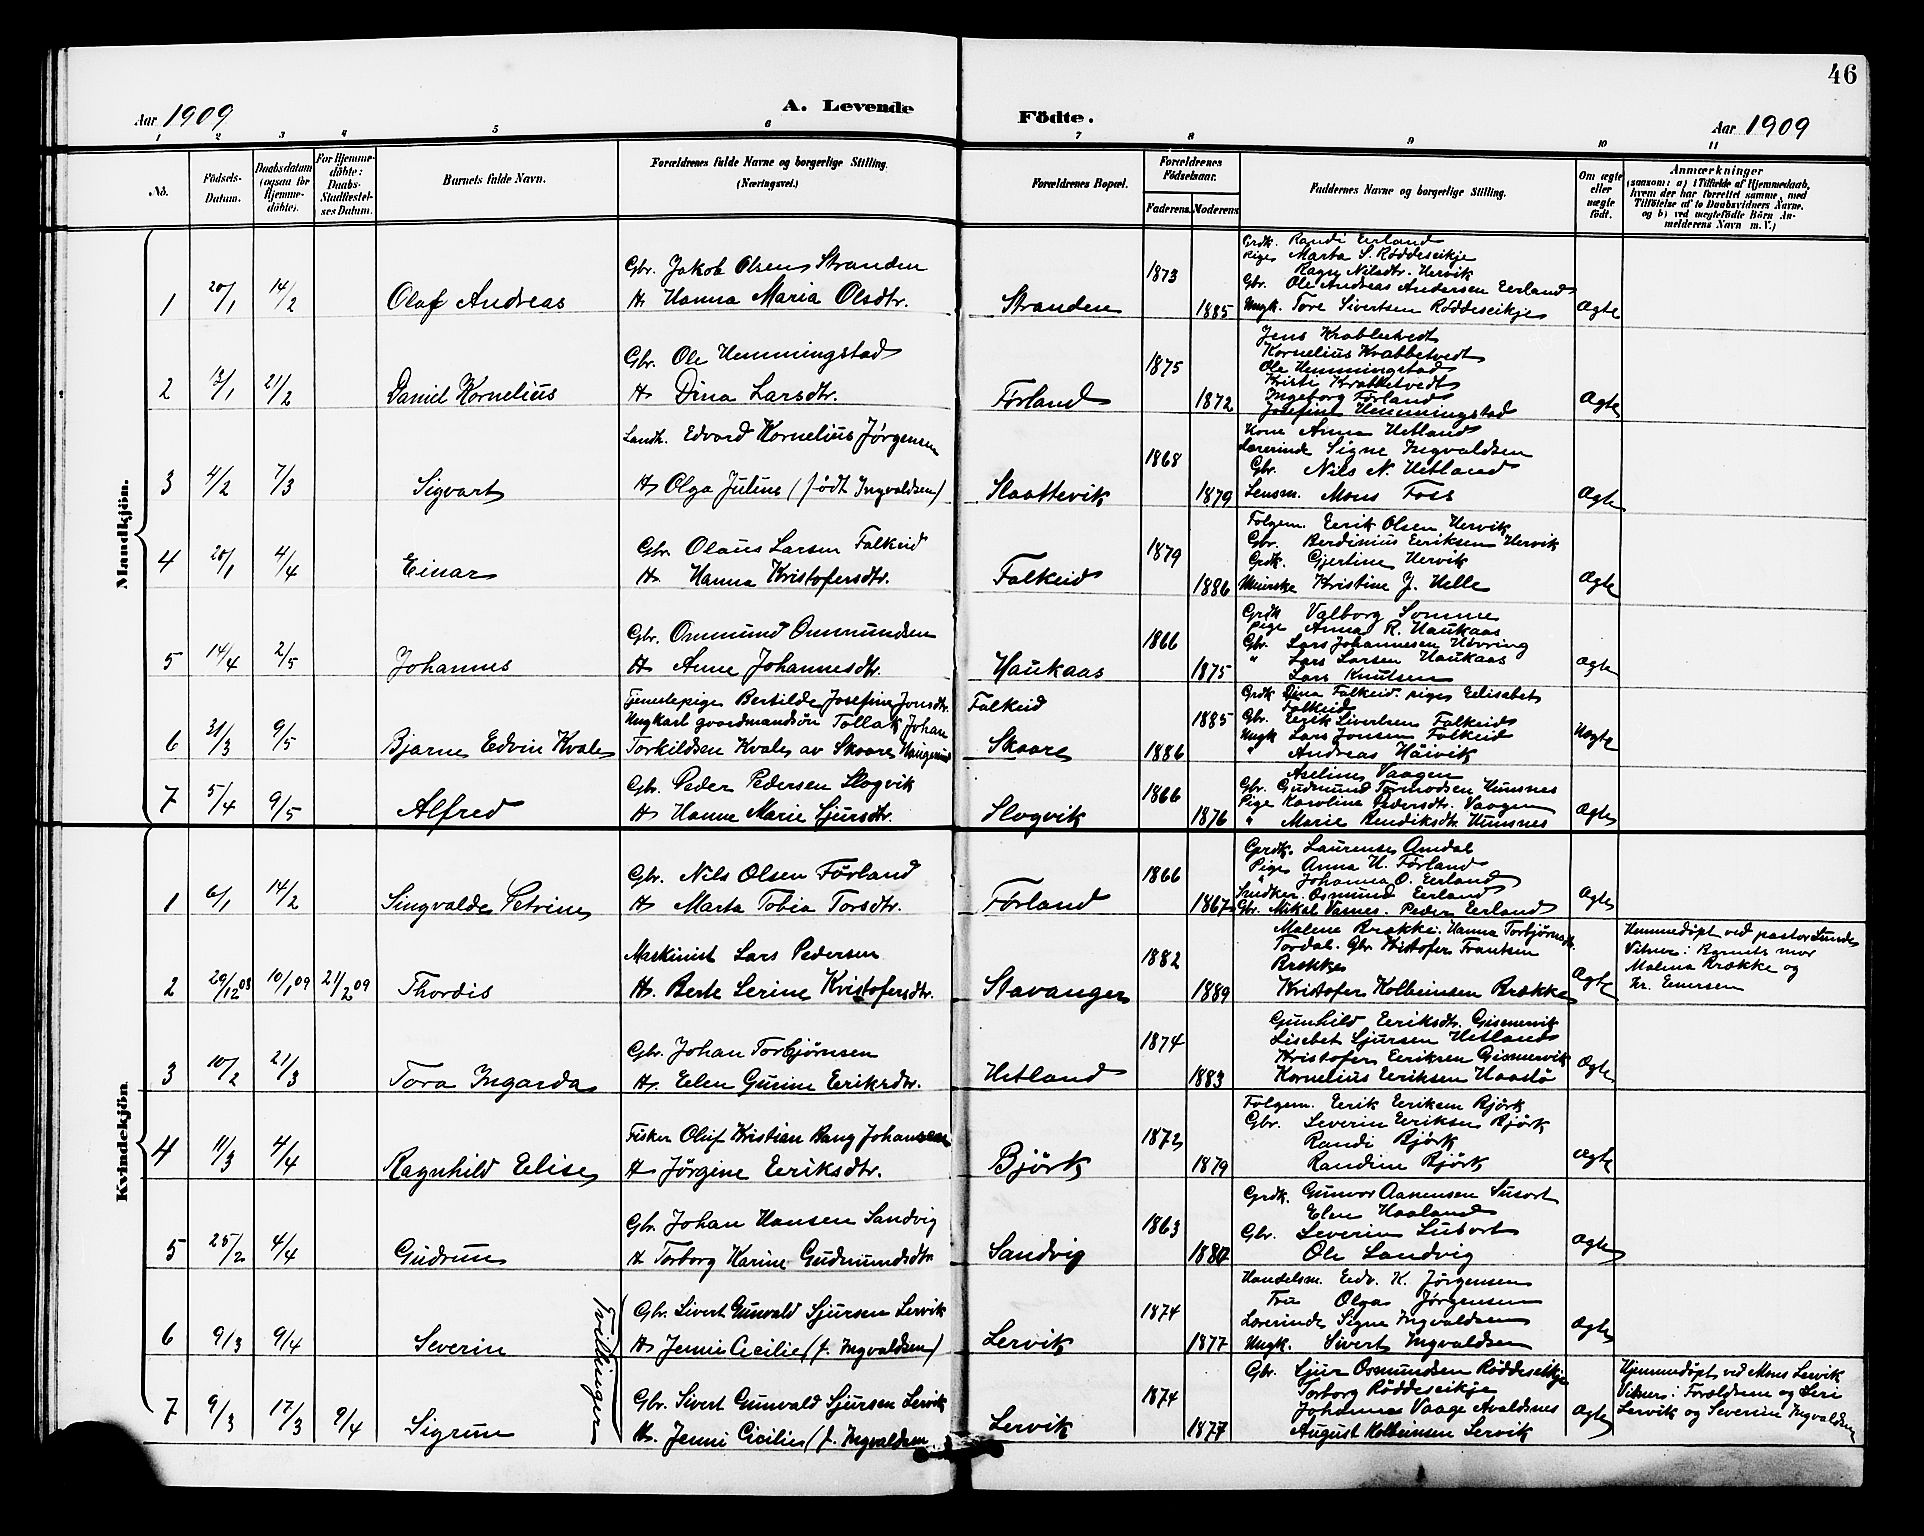 46
Aar 1909
A. Levende Födte.
Aar 1909
1 2 3 4 5 6 7 8 9 10 11
No.
Födsels-Datum.
Daabsdatum (ogsaa for Hjemme-døbte).
For Hjemme-döbte: Daabs-Stadfæstel-ses Datum.
Barnets fulde Navn.
Forældrenes fulde Navne og borgerlige Stilling.
(Næringsvei.)
Forældrenes Bopæl.
Forældrenes Födselsaar.
Faderens. Moderens.
Faddernes Navne og borgerlige Stilling.
Om ægte eller uægte födt.
Anmærkninger
(saasom: a) i Tilfælde af Hjemmedaab,
hvem der har forrettet samme, med
Tilföielse af to Daabsvidners Navne,
og b) ved uægtefödte Börn An-
melderens Navn m. V.)
Mandkjön.
1 20/1 14/2 Olaf Andreas
Gbr. Jakob Olsen Stranden
H. Hanna Maria Olsdtr.
Stranden 1873 1885
Grdk. Randi Eerland
Pige Marta S. Røddeseikje
Ragn. Nilsdtr. Hervik
Gbr. Ole Andreas Andersen Eerland
Ungk. Tore Sivertsen Røddeseikje
Ægte
2 13/1 21/2 Daniel Kornelius
Gbr. Ole Hemmingstad
H. Dina Larsdtr.
Førland 1875 1872
Jens Krabbetvedt
Kornelius Krabbetvedt
Ole Hemmingstad
Kristi Krabbetvedt
Ingeborg Førland
Josefine Hemmingstad
Ægte
3 4/2 7/3 Sigvart
Landh. Edvard Kornelius Jørgensen
H. Olga Juline (født Ingvaldsen)
Slaattevik 1868 1879
Kone Anna Hetland
Lærerinde Signe Ingvaldsen
Gbr. Nils N. Hetland
Lensm. Mons Foss
Ægte
4 20/1 4/4 Einar
Gbr. Olaus Larsen Falkeid
H. Hanna Kristofersdtr.
Falkeid 1879 1886
Folgem. Eerik Olsen Hervik
Gbr. Berdinius Eeriksen Hervik
Grdk. Gjertine Hervik
Kristine J. Helle
Ægte
5 14/4 2/5 Johannes
Gbr. Ommund Ommundsen
H. Anne Johannesdtr.
Haukaas 1866 1875
Grdk Valborg Somme
Pige Anna R. Haukaas
Gbr. Lars Johannesen Høvring
" Lars Larsen Haukaas
Lars Knutsen
Ægte
6 31/3 9/5 Bjarne Edvin Kvale
Tjenestepige Bertilde Josefine Jonsdtr.
Ungkarl gaardmandsøn Tollak Johan
Torkildsen Kvale av Skaare Haugesund
Falkeid
Skaare 1885 1886
Grdk Dina Falkeid. pige Eelisabet
Falkeid
Gbr. Eerik Sivertsen Falkeid
Ungk Lars Jonsen Falkeid
" Andreas Håivik
Uægte
7 5/4 9/5 Alfred
Gbr. Peder Pedersen Slogvik
H. Hanne Marie Sjursdtr.
Slogvik 1866 1876
Aseline Vaagen
Gbr. Gudmund Tormodsen Humsnes
Pige Karoline Pedersdtr. Vaagen
" Marie Bendiksdtr. Humsnes
Ægte
Kvindekjön
1 6/1 14/2 Singvalde Petrine
Gbr. Nils Olsen Førland
H. Marta Tobia Torsdtr.
Førland 1866 1867
Grdk. Laurense Amdal
Pige Anna H. Førland
" Johanna O. Eerland
Osmund Eerland
Gbr. Mikal Vasnes. Peder Eerland
Ægte
2 29/12 08 10/1 09 21/2 09 Thordis
Maskinist Lars Pedersen
H. Berte Serine Kristofersdtr.
Stavanger 1882 1889
Malene Brække. Hanna Torbjørnsdtr.
Tordal. Gbr. Kristofer Frantsen
Brække
Kristofer Kolbeinsen Brække
Ægte
Hemmedøpt ved pastor Lunde
Vitner: Barnets mor
Malena Brække og
Kr. Emersen
3 10/2 21/3 Tora Ingarda
Gbr. Johan Torbjørnsen
H. Elen Gurine Eeriksdtr.
Hetland 1874 1883
Gunhild Eeriksdtr. Gismervik
Lisebet Sjursen Hetland
Kristofer Eeriksen Gismervik
Kornelius Eeriksen Haastø
Ægte
4 11/3 4/4 Ragnhild Eelise
Fisker Oluf Kristian Bang Johansen
H Jørgine Eeriksdtr.
Björk 1872 1879
Folgem. Eerik Eeriksen Bjørk
Gbr. Severin Eeriksen Bjørk
Randi Bjørk
Randine Bjørk
Ægte
5 25/2 4/4 Gudrun
Gbr. Johan Hansen Sandvig
H Torborg Karine Gudmundsdtr
Sandvig 1863
Grdk. Gunvor Aanensen Susort
Elen Haaland
Gbr. Severin Susort
Ole Sandvig
Ægte
6 9/3 9/4 Severin
Tvillinger
Gbr. Sivert Gunvald Sjursen Lervik
H Jenni Cecilie (f. Ingvaldsen)
Lervik 1874 1877
Handelsm. Edv. K. Jørgensen
Fru Olga Jørgensen
Lærerinde Signe Ingvaldsen
Ungk. Sivert Ingvaldsen
Ægte
7 9/3 17/3 9/4 Sigrun
Gbr. Sivert Gunvald Sjursen Lervik
H. Jenni Cicilie (f. Ingvaldsen
Lervik 1874 1877
Gbr. Sjur Osmundsen Røddeseikje
Torborg Røddeseikje
Johanna Vaage Avaldsnes
August Kolbeinsen Lervik
Ægte
Hjemmedøpt ved Mons Lervik
Vitner: Forældrene og Seri
Lervik og Severine Ingvaldsen